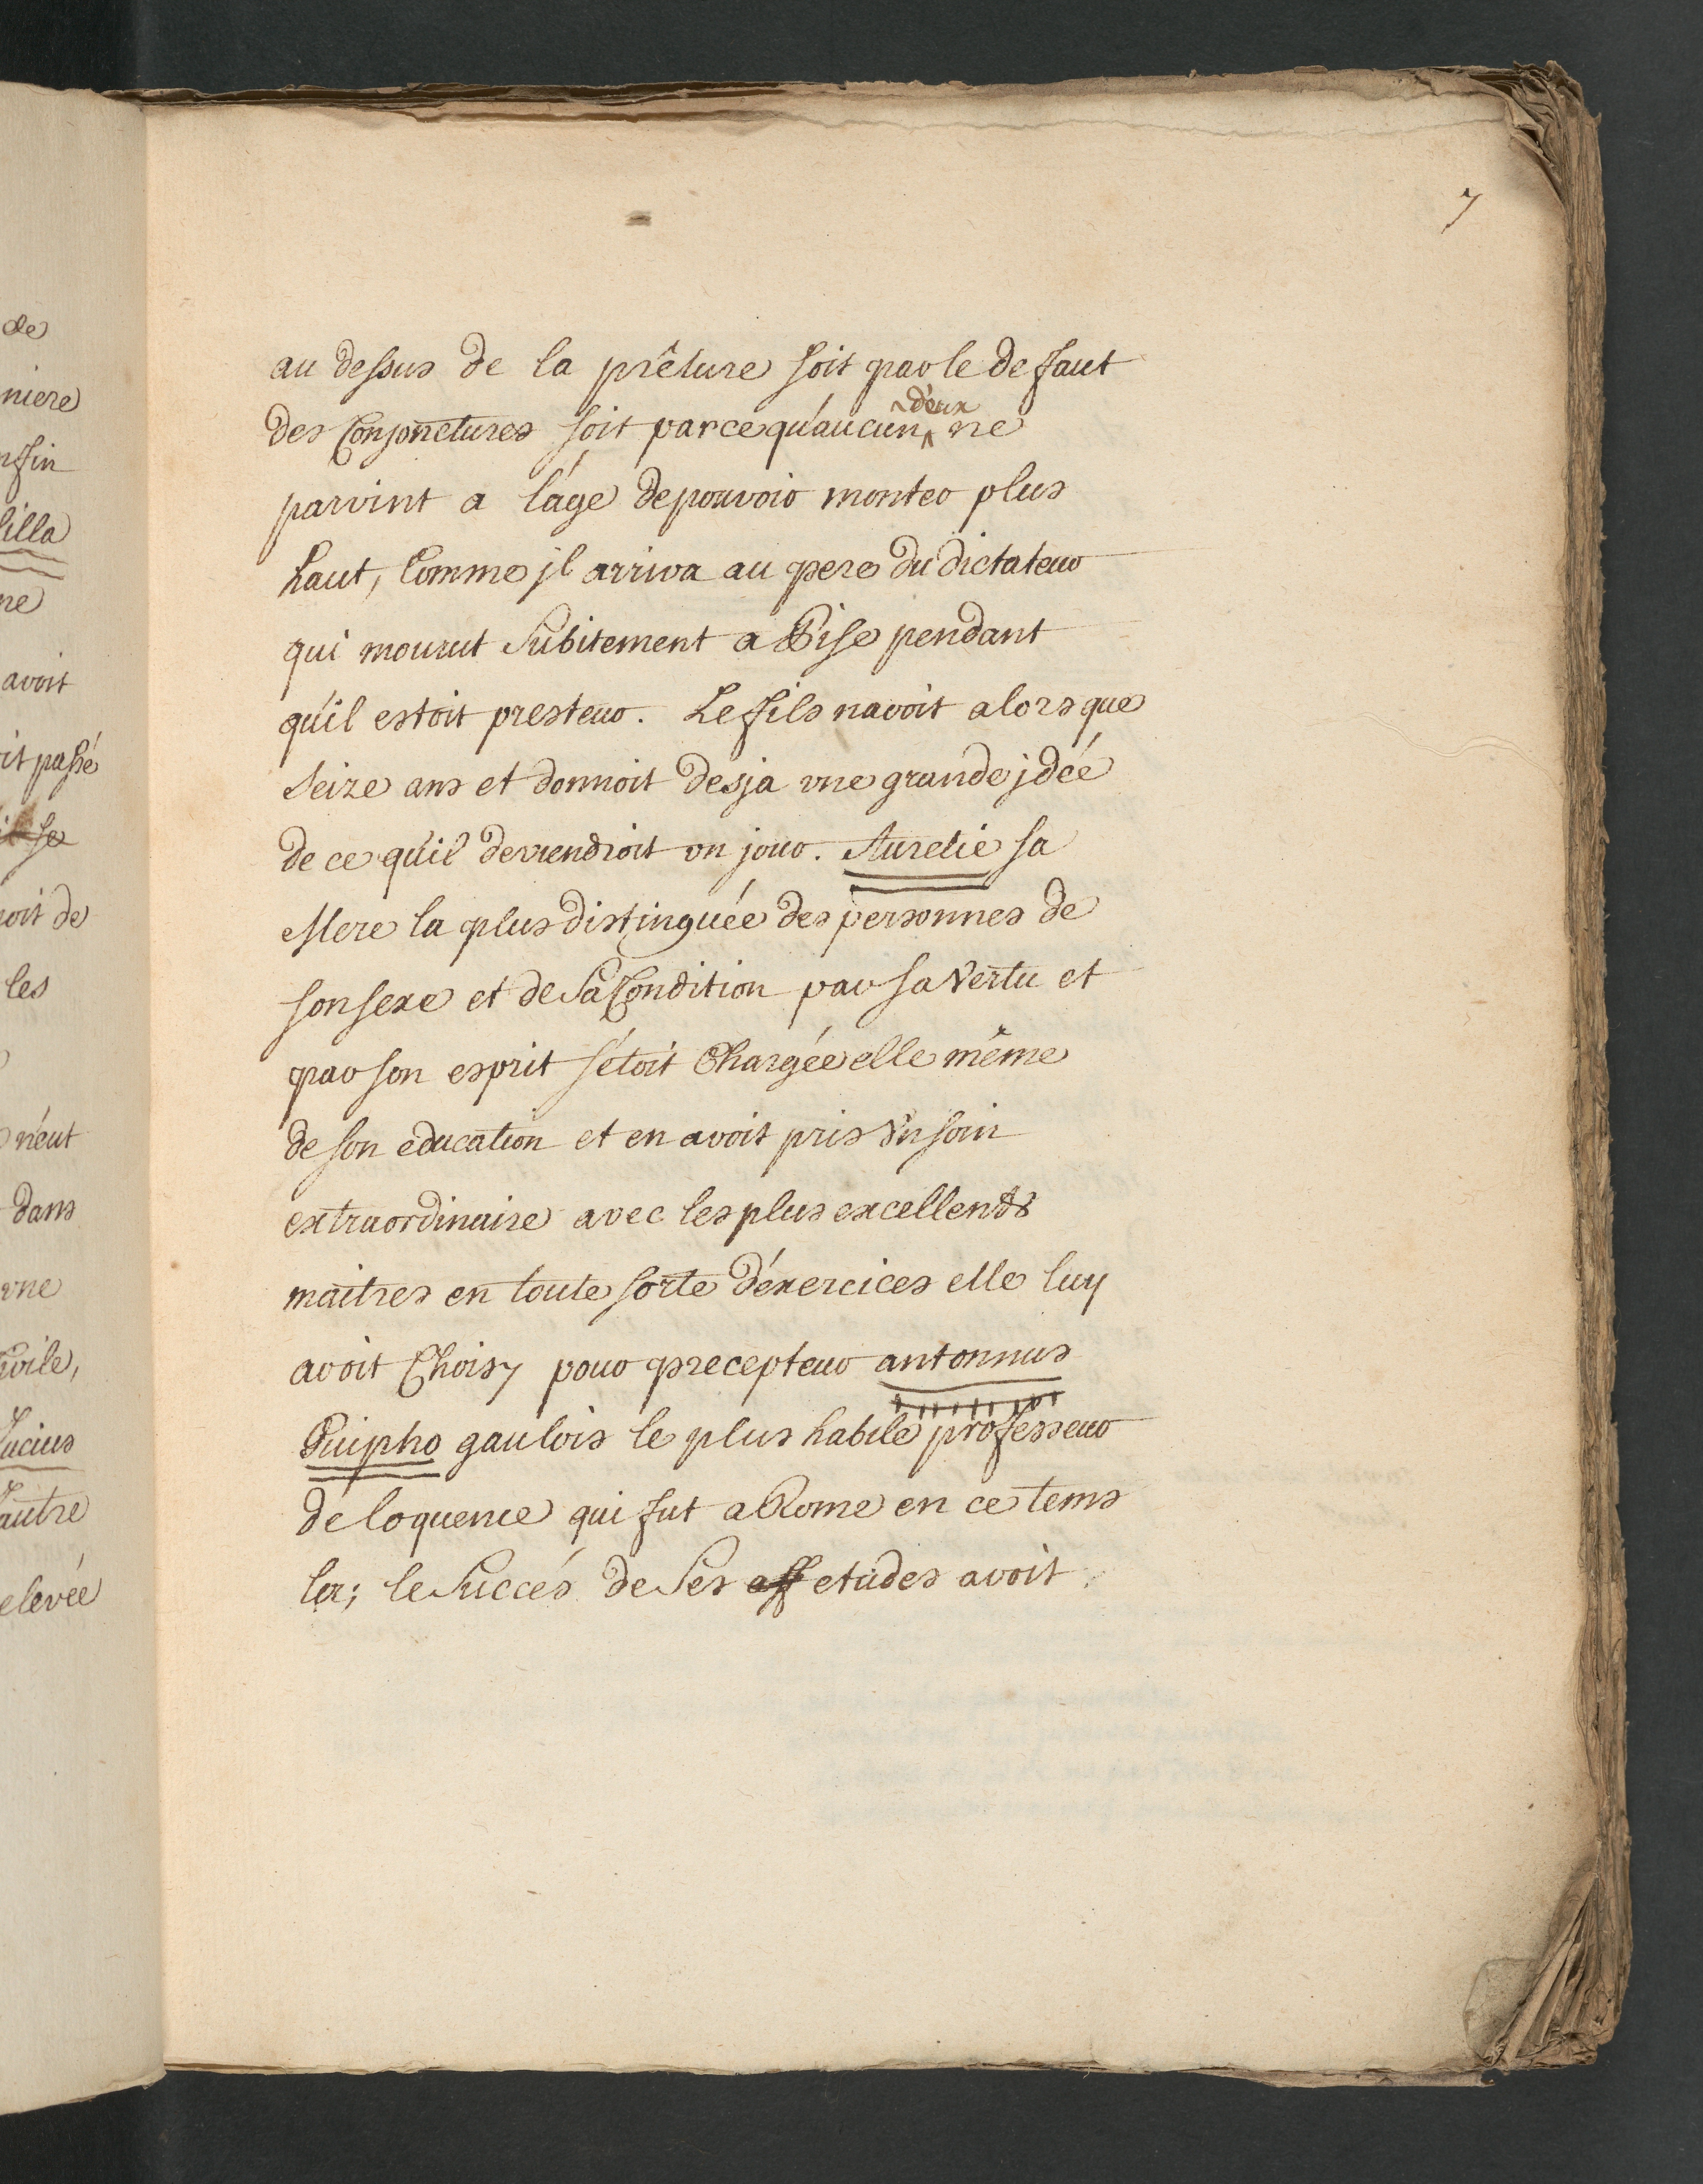 7
au dessus de la prêture soit par le defaut
des Conjonctures soit parce qu'aucun d'eux ne
parvint a l'age de pouvoir monter plus
haut, Comme jl arriva au pere du dictateur
qui mourut Subitement a Pise pendant
qu'il estoit presteur. Le fils navoit alors que
Seize ans et donnoit desja vne grande jdée
de ce qu'il deviendroit vn jour. Aurelie sa
Mere la plus distinguée des personnes de
son sexe et de Sa Condition par sa Vertu et
par son esprit s'étoit Chargée elle même
de son education et en avoit pris Vn soin
extraordinaire avec les plus excellents
maitres en toute sorte d'éxercices elle luy
avoit Choisy pour precepteur antonnus
Guipho gaulois le plus habile professeur
déloquence qui fut a Rome en ce tems
la; le Succés de Ses aff etudes avoit
de
niere
nfin
lilla
ne
avoit
it passé
il se
oit de
les
n'eut
dans
vne
Civile,
Lucius
l'autre
elevée